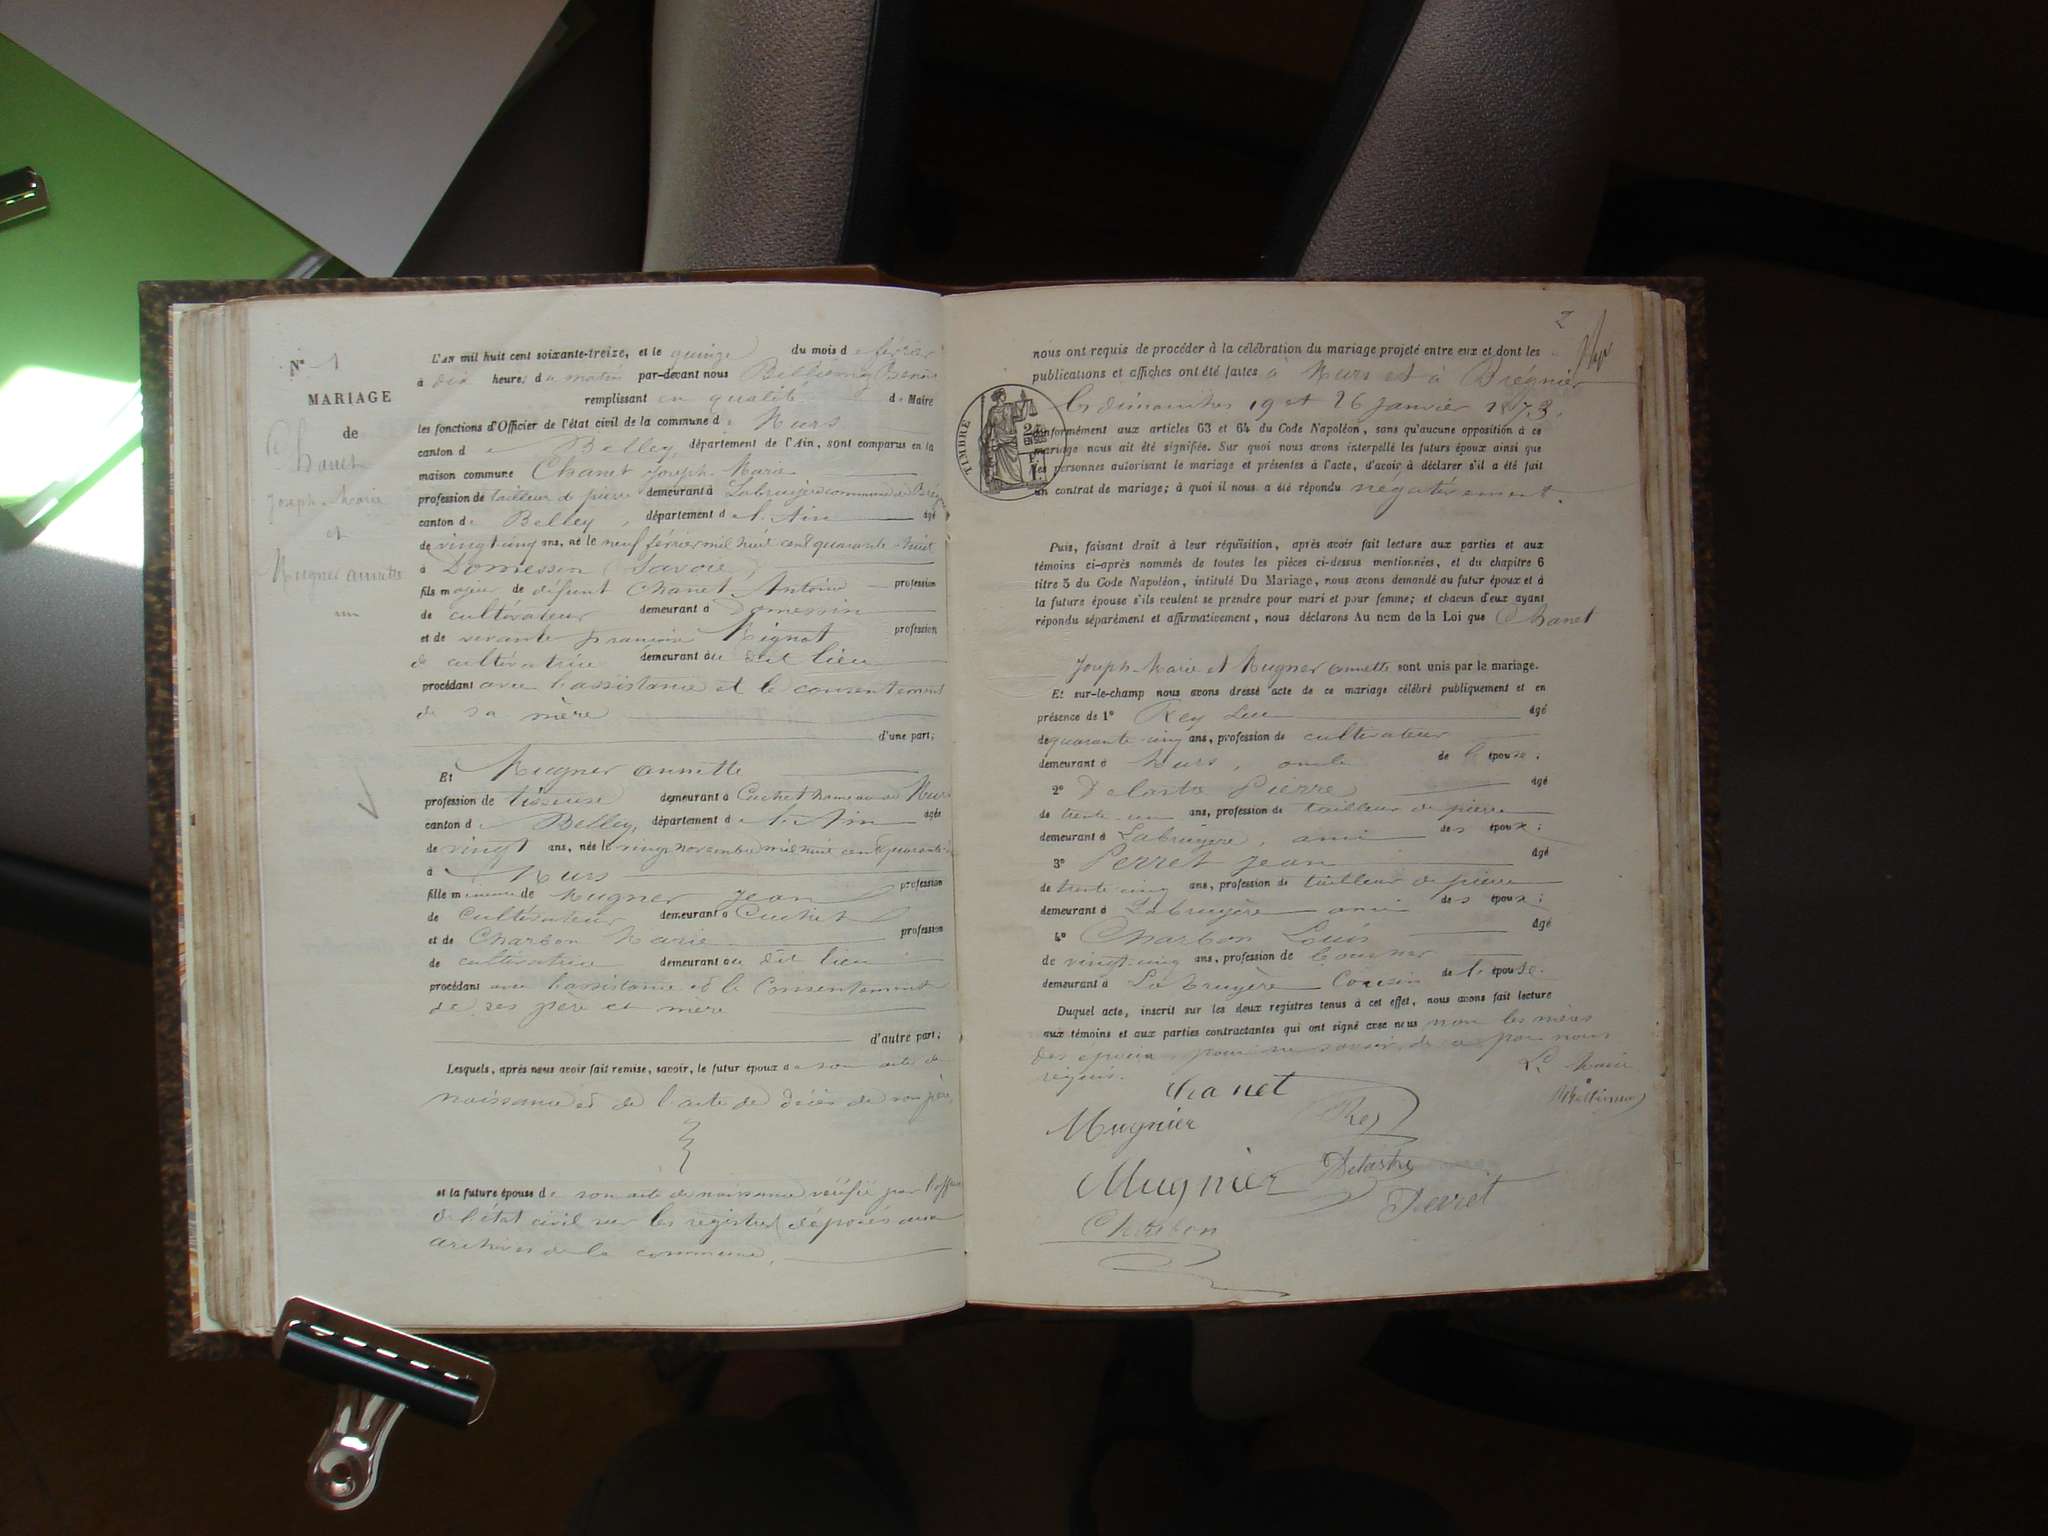 N° 1
MARIAGE
de
Chanet
Joseph-Marie
et
Mugner annette
L'AN mil huit cent soixante-treize, et le quinze du mois de février
à dix heures du matin par-devant nous
remplissant en qualité de Maire
les fonctions d'Officier de l'état civil de la commune de Murs
canton de Belley, département de l'Ain, sont comparus en la
maison commune Chanet Joseph-Marie
profession de tailleur de pierre demeurant à Labruyère commune de
canton de Belley, département de l'Ain âgé
de vingt-cinq ans, né le neuf février mil huit cent quarante-huit
à Domessin (Savoie)
fils majeur de défunt Chanet Antoine profession
de cultivateur demeurant à Domessin
et de vivante Mignot profession
de cultivatrice demeurant au dit lieu
procédant avec l'assistance et le consentement
de sa mère
d'une part;
Et Mugner annette
profession de tisseuse demeurant à Cuchet hameau de Murs
canton de Belley, département de l'Ain âgée
de vingt ans, née le novembre mil huit cent quarante
à Murs
fille mineure de Mugner Jean profession
de Cultivateur demeurant à Cuchet
et de Charbon Marie profession
de cultivatrice demeurant au dit lieu
procédant avec l'assistance et le Consentement
de ses père et mère
d'autre part;
Lesquels, après nous avoir fait remise, savoir, le futur époux de son acte de
naissance et de l'acte de décès de son père,
et la future épouse de son acte de naissance vérifié par
de l'état civil sur les registres déposés aux
archives de la commune.
2
nous ont requis de procéder à la célébration du mariage projeté entre eux et dont les
publications et affiches ont été faites à Murs et à Brégnier
les dimanches 19 et 26 Janvier 1873,
TIMBRE
conformément aux articles 63 et 64 du Code Napoléon, sans qu'aucune opposition à ce
mariage nous ait été signifiée. Sur quoi nous avons interpellé les futurs époux ainsi que
les personnes autorisant le mariage et présentes à l'acte, d'avoir à déclarer s'il a été fait
un contrat de mariage; à quoi il nous a été répondu négativement.
Puis, faisant droit à leur réquisition, après avoir fait lecture aux parties et aux
témoins ci-après nommés de toutes les pièces ci-dessus mentionnées, et du chapitre 6
titre 5 du Code Napoléon, intitulé Du Mariage, nous avons demandé au futur époux et à
la future épouse s'ils veulent se prendre pour mari et pour femme; et chacun d'eux ayant
répondu séparément et affirmativement, nous déclarons Au nom de la Loi que Chanet
Joseph-Marie et Mugner annette sont unis par le mariage.
Et sur-le-champ nous avons dressé acte de ce mariage célébré publiquement et en
présence de 1° Rey Luc âgé
de quarante-cinq ans, profession de cultivateur
demeurant à Murs, oncle de l'épouse;
2° Delastre Pierre âgé
de trente-un ans, profession de tailleur de pierre
demeurant à Labruyère, ami des époux;
3° Perret Jean âgé
de trente-cinq ans, profession de tailleur de pierre
demeurant à Labruyère ami des époux;
4° Charbon Louis âgé
de vingt-cinq ans, profession de
demeurant à La bruyère Cousin de l'épouse.
Duquel acte, inscrit sur les deux registres tenus à cet effet, nous avons fait lecture
aux témoins et aux parties contractantes qui ont signé avec nous non les mères
des époux, pour ne savoir, de ce par nous
requis.
Le Maire
Chanet
Mugnier
Rey
Mugnier
Delastre
Perret
Charbon